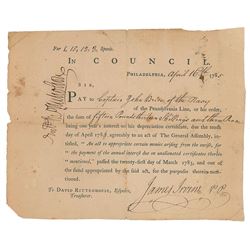 For £. 15, 13, 3, Specie.
IN COUNCIL.
PHILADELPHIA, April 16th 1785
SIR,
PAY to Captain John Brice of the Navy
of the Pennsylvania Line, or his order,
the sum of fifteen Pounds thirteen Shillings and three Pence
being one year's interest on his depreciation certificate, due the tenth
day of April 1784, agreeably to an act of the General Assembly, intitled,
"An act to appropriate certain monies arising from the excise, for
the payment of the annual interest due on unalienated certificates therein
mentioned," passed the twenty-first day of March 1783, and out of the
fund appropriated by the said act, for the purposes therein mentioned.
To DAVID RITTENHOUSE, Esquire,
Treasurer.
James Irvine V. P.